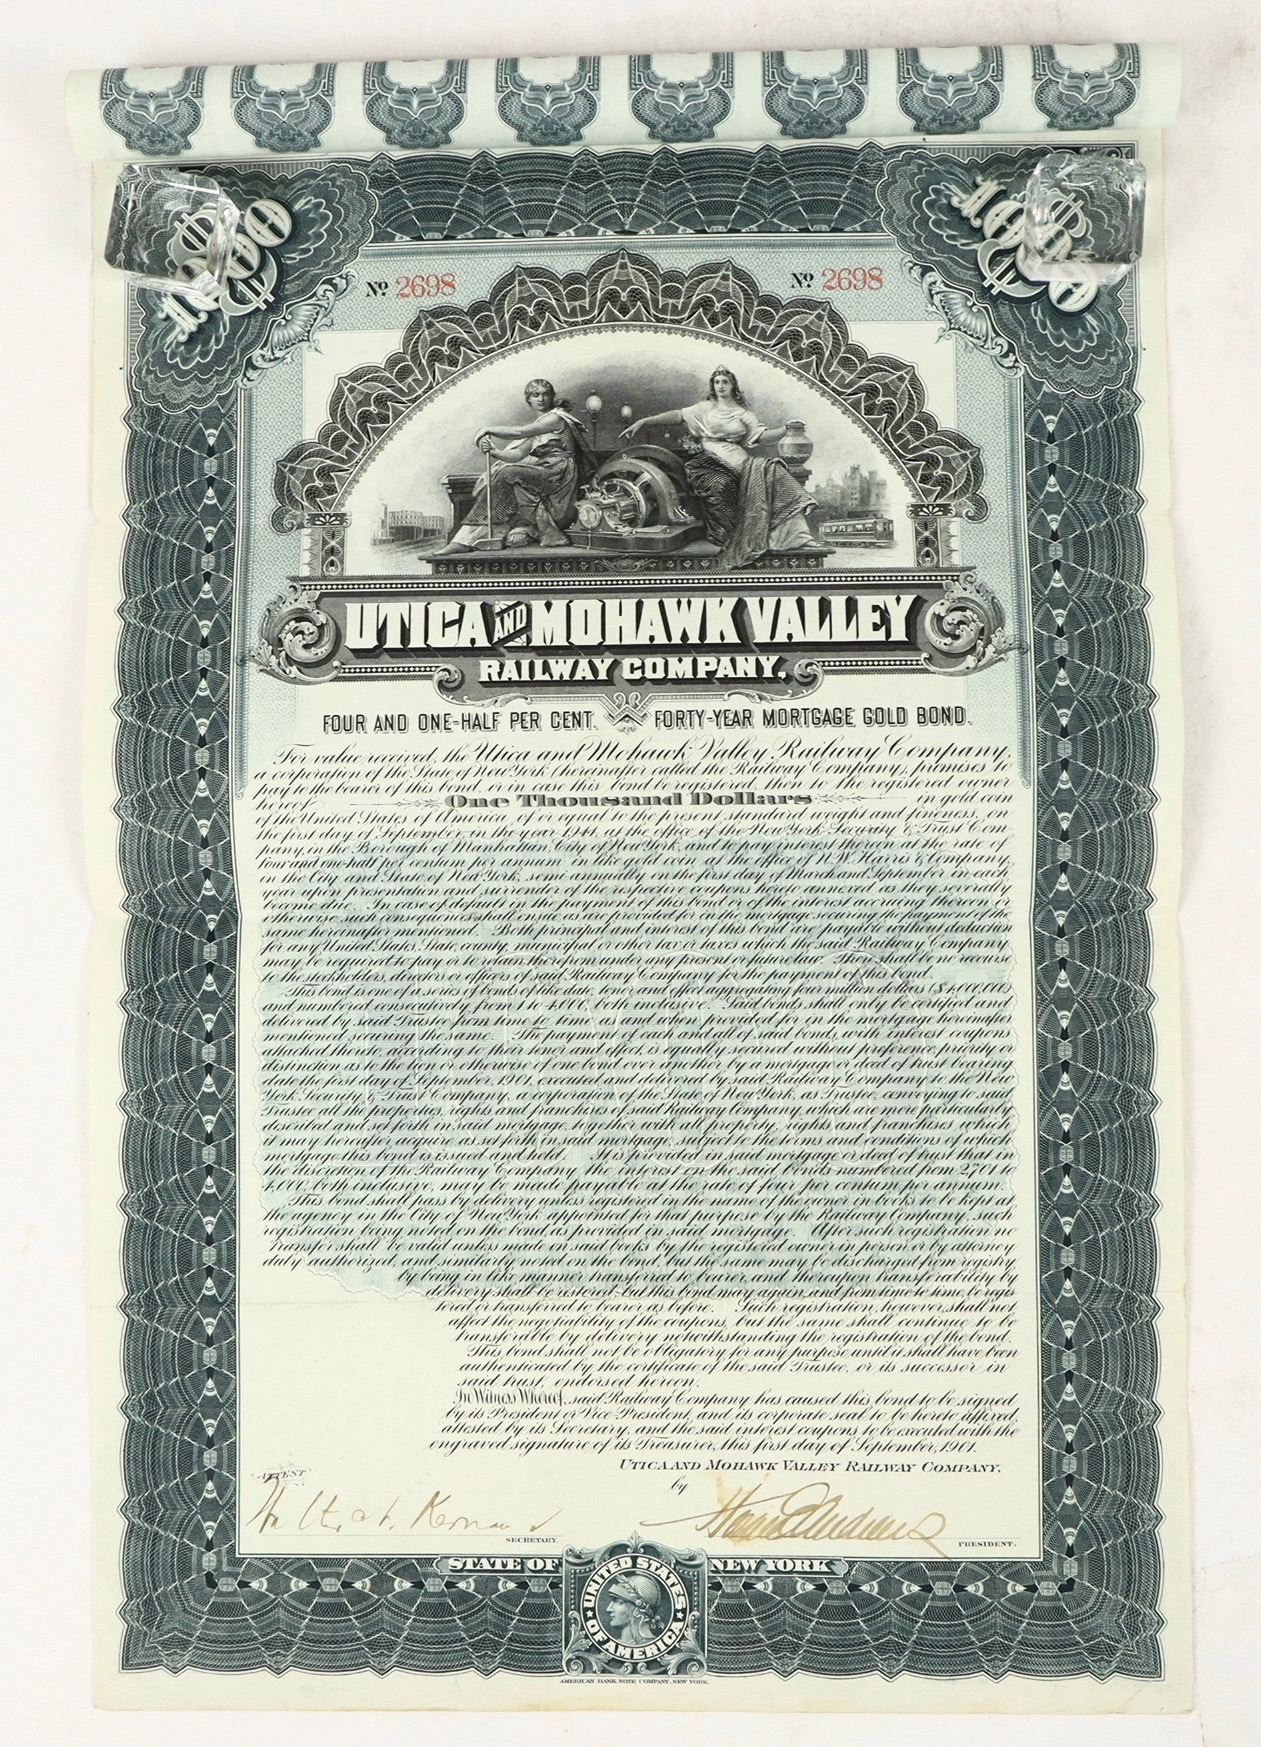 1000
$
1000
$
No. 2698
No. 2698
UTICA AND MOHAWK VALLEY
RAILWAY COMPANY.
FOUR AND ONE-HALF PER CENT. FORTY-YEAR MORTGAGE GOLD BOND.
For value received, the Utica and Mohawk Valley Railway Company,
a corporation of the State of New York (hereinafter called the Railway Company), promises to
pay to the bearer of this bond, or in case this bond be registered, then to the registered owner
hereof One Thousand Dollars in gold coin
of the United States of America of or equal to the present standard weight and fineness, on
the first day of September, in the year 1941, at the office of the New York Security & Trust Com-
pany, in the Borough of Manhattan, City of New York, and to pay interest thereon at the rate of
four and one-half per centum per annum in like gold coin at the office of N.W. Harris & Company,
in the City and State of New York, semi-annually on the first day of March and September in each
year upon presentation and surrender of the respective coupons hereto annexed as they severally
become due. In case of default in the payment of this bond or of the interest accruing thereon or
otherwise such consequences shall ensue as are provided for in the mortgage securing the payment of the
same hereinafter mentioned. Both principal and interest of this bond are payable without deduction
for any United States, State, county, municipal or other tax or taxes which the said Railway Company
may be required to pay or to retain therefrom under any present or future law. There shall be no recourse
to the stockholders, directors or officers of said Railway Company for the payment of this bond.
This bond is one of a series of bonds of like date, tenor and effect aggregating four million dollars ($4,000,000)
and numbered consecutively from 1 to 4,000, both inclusive. Said bonds shall only be certified and
delivered by said Trustee from time to time as and when provided for in the mortgage hereinafter
mentioned, securing the same. The payment of each and all of said bonds, with interest coupons
attached thereto, according to their tenor and effect, is equally secured without preference, priority or
distinction as to the lien or otherwise of one bond over another by a mortgage or deed of trust bearing
date the first day of September, 1901, executed and delivered by said Railway Company to the New
York Security & Trust Company, a corporation of the State of New York, as Trustee, conveying to said
Trustee all the properties, rights and franchises of said Railway Company, which are more particularly
described and set forth in said mortgage, together with all property, rights and franchises which
it may hereafter acquire, as set forth in said mortgage, subject to the terms and conditions of which
mortgage this bond is issued and held. It is provided in said mortgage or deed of trust that in
the discretion of the Railway Company the interest on the said bonds numbered from 2,701 to
4,000, both inclusive, may be made payable at the rate of four per centum per annum.
This bond shall pass by delivery unless registered in the name of the owner in books to be kept at
the agency in the City of New York appointed for that purpose by the Railway Company, such
registration being noted on the bond, as provided in said mortgage. After such registration no
transfer shall be valid unless made on said books by the registered owner in person or by attorney
duly authorized, and similarly noted on the bond, but the same may be discharged from registry
by being in like manner transferred to bearer, and thereupon transferability by
delivery shall be restored, but this bond may again, and from time to time, be regis-
tered or transferred to bearer as before. Such registration, however, shall not
affect the negotiability of the coupons, but the same shall continue to be
transferable by delivery notwithstanding the registration of the bond.
This bond shall not be obligatory for any purpose until it shall have been
authenticated by the certificate of the said Trustee, or its successor in
said trust, endorsed hereon.
In Witness Whereof, said Railway Company has caused this bond to be signed
by its President or Vice-President, and its corporate seal to be hereto affixed,
attested by its Secretary, and the said interest coupons to be executed with the
engraved signature of its Treasurer, this first day of September, 1901.
UTICA AND MOHAWK VALLEY RAILWAY COMPANY,
ATTEST
by
Walter N. Kernan
SECRETARY.
PRESIDENT.
STATE OF NEW YORK
UNITED STATES OF AMERICA
AMERICAN BANK NOTE COMPANY, NEW YORK.